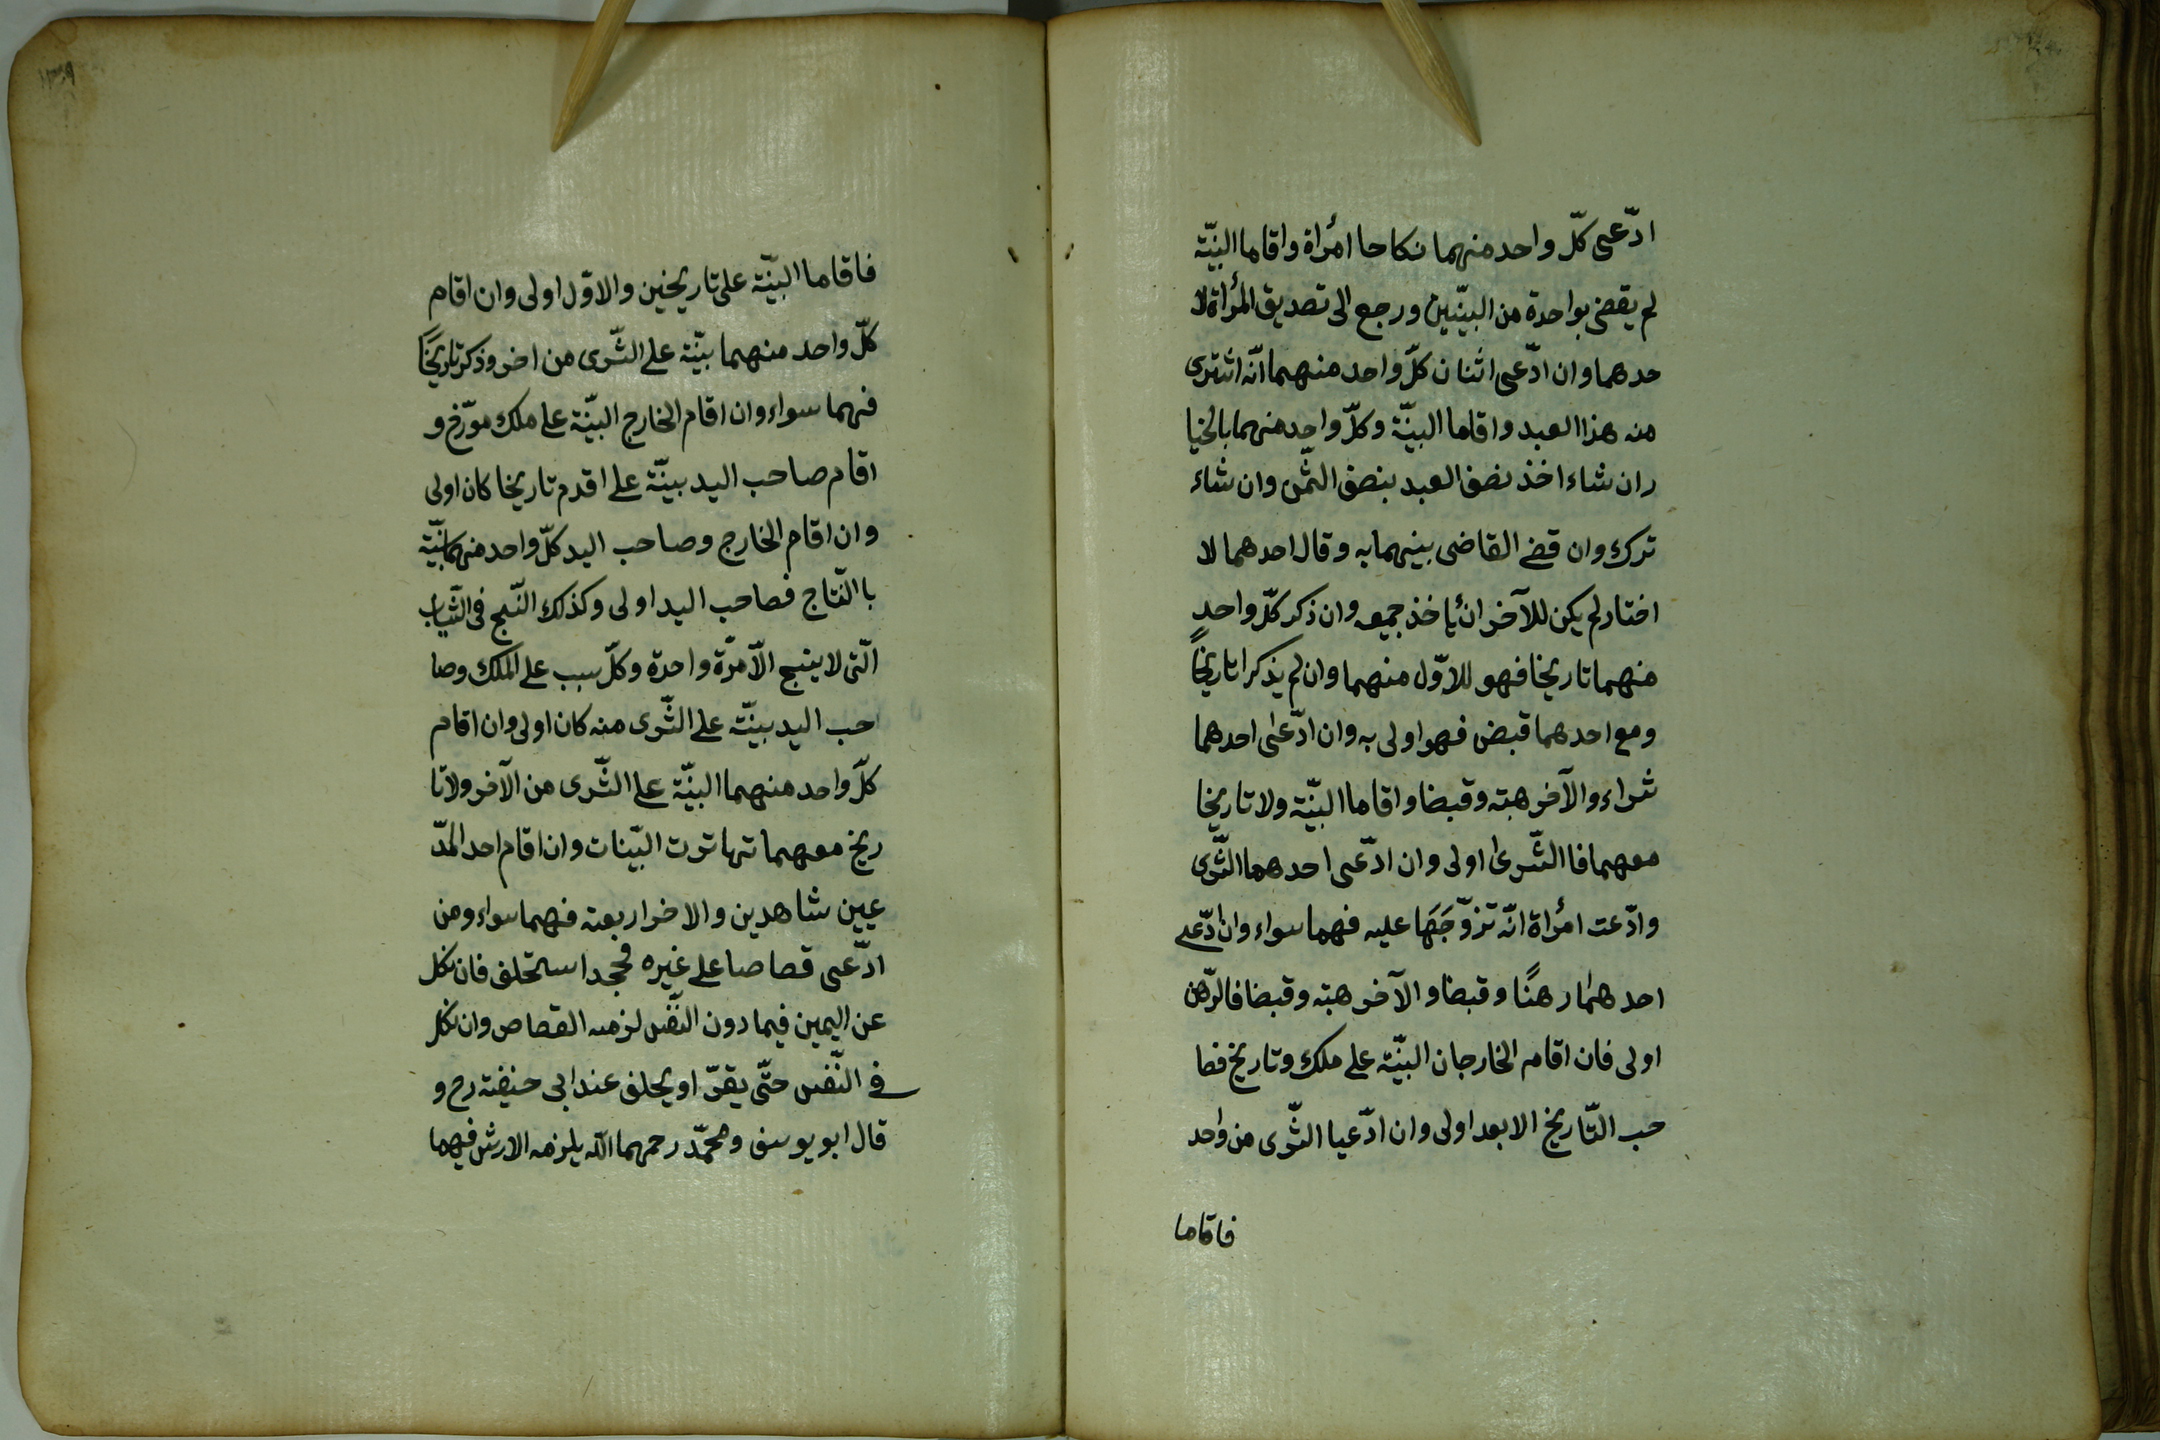 ادّعى كلّ واحد منهما نكاحا امرأة واقاما البيّنة
لم يقض بواحدة من البيّنتين ورجع الى تصديق المرأة لا
حدهما وان ادّعى اثنان كلّ واحد منهما انّه اشترى
منه هذا العبد واقاما البيّنة وكلّ واحد منهما بالخيا
ران شاء اخذ نصف العبد بنصف الثّمن وان شاء
ترك وان قضے القاضى بينهما به وقال احدهما لا
اختار لم يكن للآخر ان يأخذ جميعه وان ذكر كلّ واحدٍ
منهما تاريخا فهو للاوّل منهما وان لم يذكرا تاريخًا
ومع احدهما قبض فهو اولى به وان ادّعى احدهما
شراء والآخر هبته وقبضا واقاما البيّنة ولا تاريخا
معهما فا الشّرىٰ اولى وان ادّعى احدهما الشّرى
وادّعت امرأة انّه تزوّجَهَا عليه فهما سواء وان ادّعے
احدهما رهنًا وقبضا والآخر هبته وقبضا فالرّهن
اولى فان اقام الخارجان البيّنة علے ملك وتاريخ فصا
حب التّاريخ الابعد اولى وان ادّعيا الشّرى من واحد
فاقاما
١٣٩
فاقاما البيّنة على تاريخين والاوّل اولى وان اقام
كلّ واحد منهما بيّنة علے الشّرى من اخر وذكر تاريخًا
فهما سواء وان اقام الخارج البيّنة علے ملك مورّخ و
اقام صاحب اليد بيّنة علے اقدم تاريخا كان اولى
وان اقام الخارج وصاحب اليد كلّ واحد منهما بيّنة
با النّتاج فصاحب اليد اولى وكذلك النّسج فى الثّياب
الّتى لا ينسج الّا مرّة واحدة وكلّ سبب علے الملك وصا
حب اليد بيّنة علے الشّرى منه كان اولى وان اقام
كلّ واحد منهما البيّنة علے الشّرى من الآخر ولا تا
ريخ معهما تهاترت البيّنات وان اقام احد المدّ
عيين شاهدين والاخر اربعة فهما سواء ومن
ادّعى قصاصا علے غيره فجحد استحلف فان نكل
عن اليمين فيما دون النّفس لزمه القصاص وان نكل
فے النّفس حتّى يقرّ او يحلف عند ابى حنيفة رح و
قال ابو يوسف ومحمّد رحمهما اللّه يلزمه الارش فيهما